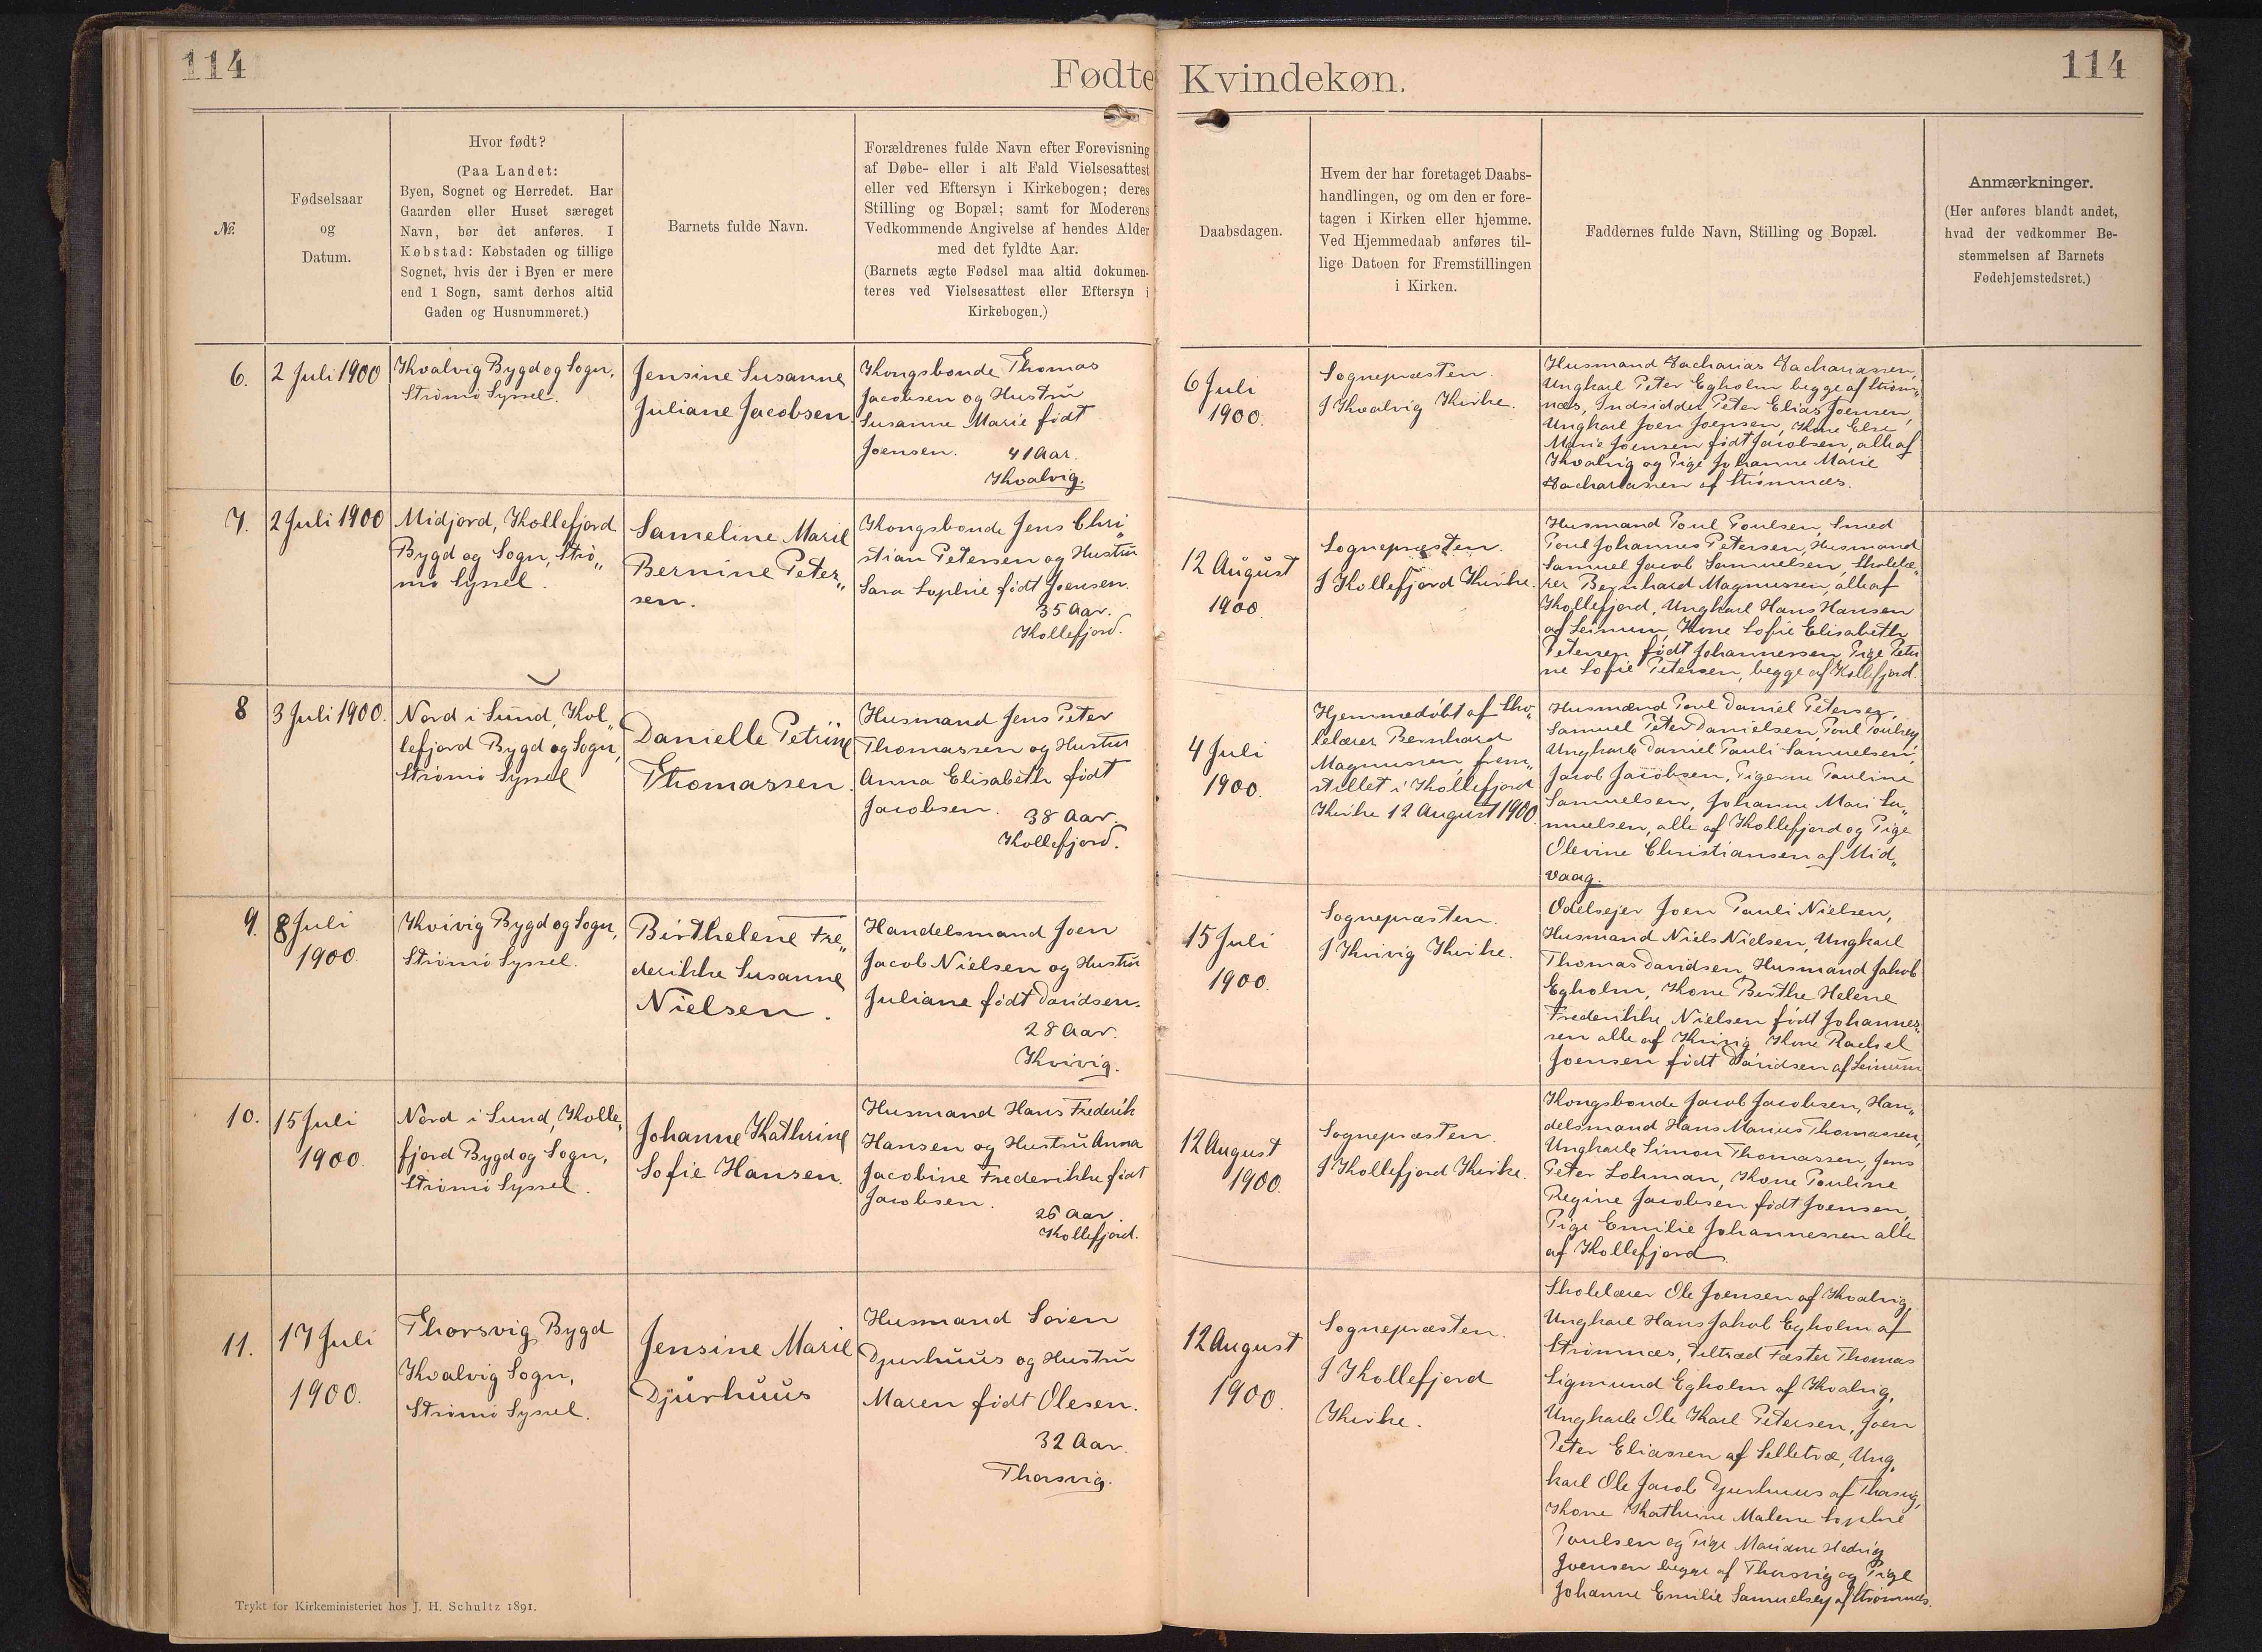 114
Fødte
Kvindekøn.
114
№.
Fødselsaar
og
Datum.
Hvor født?
(Paa Landet:
Byen, Sognet og Herredet. Har
Gaarden eller Huset særeget
Navn, bør det anføres. I
Købstad: Købstaden og tillige
Sognet, hvis der i Byen er mere
end 1 Sogn, samt derhos altid
Gaden og Husnummeret.)
Barnets fulde Navn.
Forældrenes fulde Navn efter Forevisning
af Døbe- eller i alt Fald Vielsesattest
eller ved Eftersyn i Kirkebogen; deres
Stilling og Bopæl; samt for Moderens
Vedkommende Angivelse af hendes Alder
med det fyldte Aar.
(Barnets ægte Fødsel maa altid dokumen-
teres ved Vielsesattest eller Eftersyn i
Kirkebogen.)
Daabsdagen.
Hvem der har foretaget Daabs-
handlingen, og om den er fore-
tagen i Kirken eller hjemme.
Ved Hjemmedaab anføres til-
lige Datoen for Fremstillingen
i Kirken.
Faddernes fulde Navn, Stilling og Bopæl.
Anmærkninger.
(Her anføres blandt andet,
hvad der vedkommer Be-
stemmelsen af Barnets
Fødehjemstedsret.)
6.
2 Juli 1900
Kvalvig Bygd og Sogn,
Strömö Syssel.
Jensine Susanne
Juliane Jacobsen.
Kongsbonde Thomas
Jacobsen og Hustru
Susanne Marie født
Joensen. 41 Aar.
Kvalvig.
6 Juli
1900.
Sognepræsten.
I Kvalvig Kirke.
Husmand Zacharias Zachariassen,
Ungkarl Peter Egholm begge af Ström„
næs, Indsidder Peter Elias Joensen,
Ungkarl Joen Joensen, Kone Else
Marie Joensen født Jacobsen, alle af
Kvalvig og Pige Johanne Marie
Zachariassen af Strömnæs.
7.
2 Juli 1900
Midjord, Kollefjord
Bygd og Sogn, Strö„
mö Syssel.
Sameline Marie
Bernine Peter„
sen.
Kongsbonde Jens Chri„
stian Petersen og Hustru
Sara Sophie født Joensen.
35 Aar.
Kollefjord.
12 August
1900.
Sognepræsten.
I Kollefjord Kirke.
Husmand Poul Poulsen, Smed
Poul Johannes Petersen, Husmand
Samuel Jacob Samuelsen, Skolelæ„
rer Bernhard Magnussen, alle af
Kollefjord, Ungkarl Hans Hansen
af Leinum, Kone Sofie Elisabeth
Petersen født Johannessen, Pige Petri
ne Sofie Petersen, begge af Kollefjord.
8
3 Juli 1900.
Nord i Sund, Kol„
lefjord Bygd og Sogn,
Strömö Syssel
Danielle Petrine
Thomassen.
Husmand Jens Peter
Thomassen og Hustru
Anna Elisabeth født
Jacobsen. 38 Aar.
Kollefjord.
4 Juli
1900.
Hjemmedöbt af Sko„
lelærer Bernhard
Magnussen, frem„
stillet i Kollefjord
Kirke 12 August 1900.
Husmænd Poul Daniel Petersen,
Samuel Peter Danielsen, Poul Poulsen,
Ungkarle Daniel Pauli Samuelsen,
Jacob Jacobsen, Pigerne Pauline
Samuelsen, Johanne Mari Sa„
muelsen, alle af Kollefjord og Pige
Olevine Christiansen af Mid„
vaag.
9.
8 Juli
1900
Kvivig Bygd og Sogn,
Strömö Syssel.
Birthelene Fre„
derikke Susanne
Nielsen.
Handelsmand Joen
Jacob Nielsen og Hustru
Juliane født Davidsen.
28 Aar.
Kvivig.
15 Juli
1900.
Sognepræsten.
I Kvivig Kirke.
Odelsejer Joen Pauli Nielsen,
Husmand Niels Nielsen, Ungkarl
Thomas Davidsen, Husmand Jakob
Egholm, Kone Birthe Helene
Frederikke Nielsen født Johannes„
sen alle af Kvivig, Kone Rachel
Joensen født Davidsen af Leinum
10.
15 Juli
1900.
Nord i Sund, Kolle„
fjord Bygd og Sogn,
Strömö Syssel.
Johanne Kathrine
Sofie Hansen.
Husmand Hans Frederik
Hansen og Hustru Anna
Jacobine Frederikke født
Jacobsen. 26 Aar.
Kollefjord.
12 August
1900.
Sognepræsten.
I Kollefjord Kirke.
Kongsbonde Jacob Jacobsen, Han„
delsmand Hans Marius Thomassen,
Ungkarle Simon Thomassen, Jens
Peter Lohman, Kone Pouline
Regine Jacobsen født Joensen,
Pige Emilie Johannessen alle
af Kollefjord.
11.
17 Juli
1900.
Thorsvig Bygd
Kvalvig Sogn,
Strömö Syssel.
Jensine Marie
Djurhuus
Husmand Sören
Djurhuus og Hustru
Maren født Olesen.
32 Aar.
Thorsvig.
12 August
1900.
Sognepræsten.
I Kollefjord
Kirke.
Skolelærer Ole Joensen af Kvalvig,
Ungkarl Hans Jakob Egholm af
Strömnæs, Tiltræd Fæster Thomas
Sigmund Egholm af Kvalvig,
Ungkarle Ole Karl Petersen, Joen
Peter Eliassen af Selletræ, Ung„
karl Ole Jacob Djurhuus af Thorsvig,
Kone Kathrine Malene Sophie
Poulsen og Pige Mariane Hedvig
Joensen begge af Thorsvig og Pige
Johanne Emilie Samuelsen af Strömnæs.
Trykt for Kirkeministeriet hos J. H. Schultz 1891.